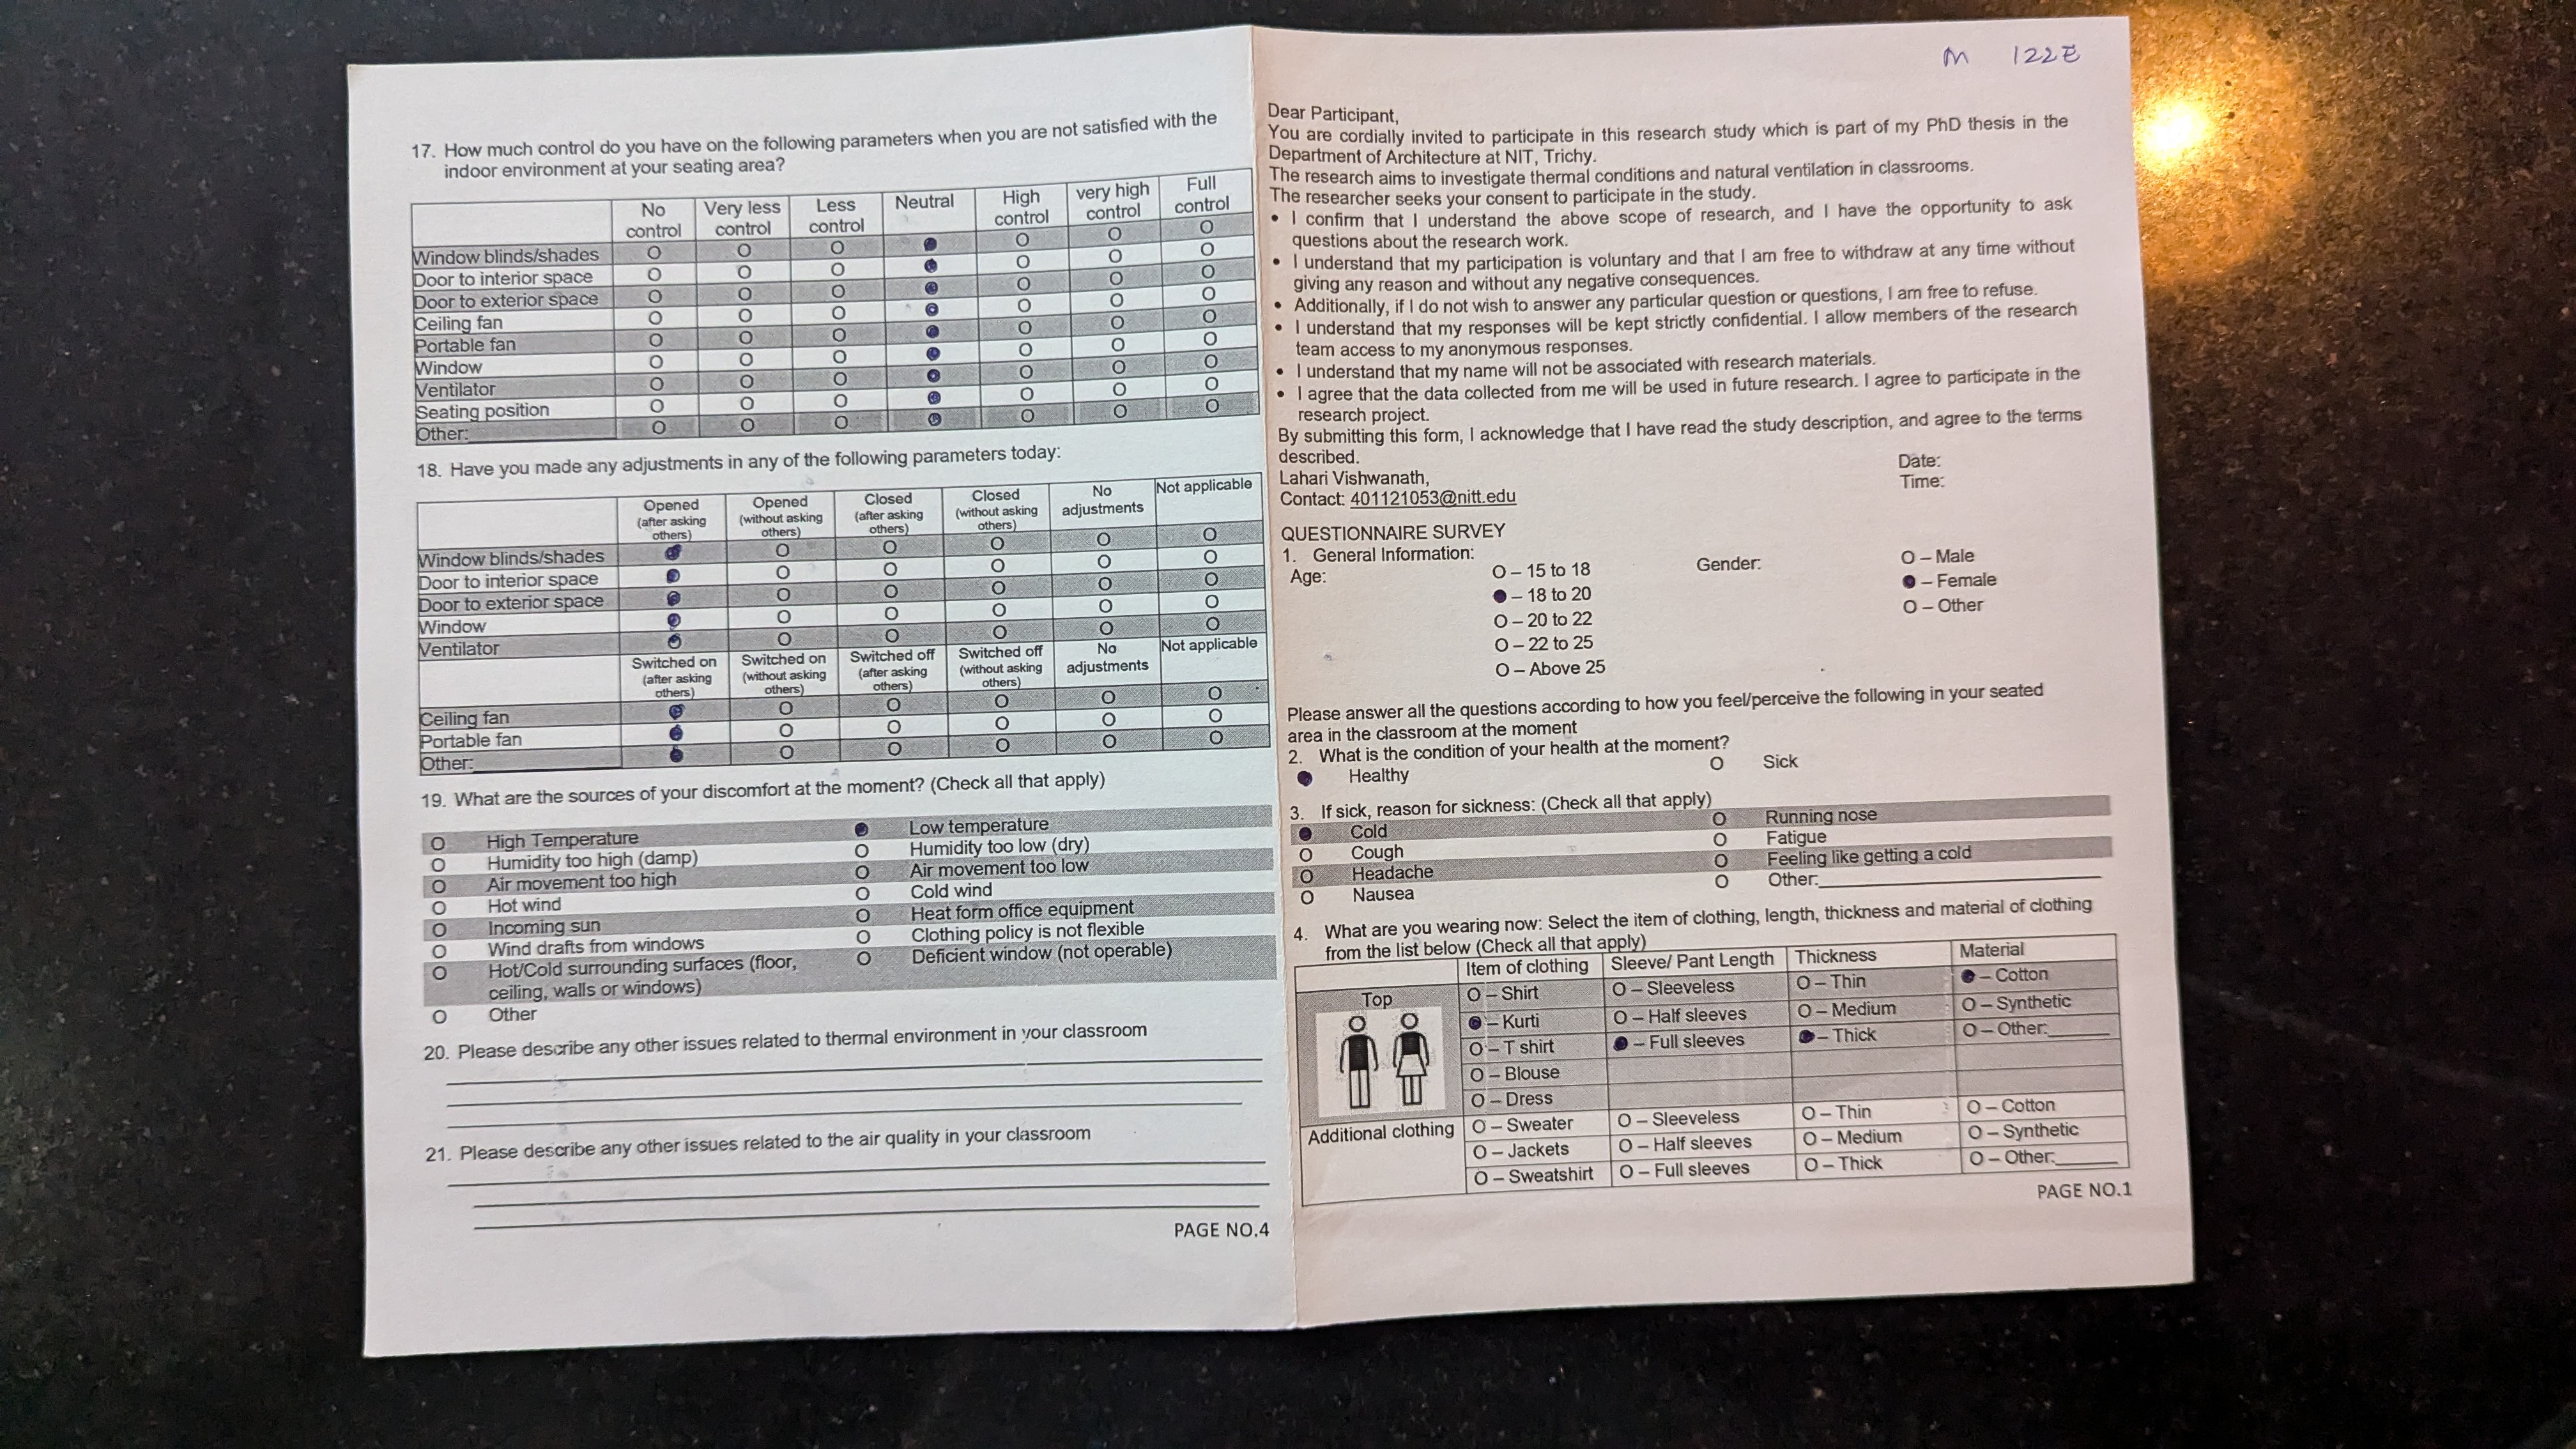 17. How much control do you have on the following parameters when you are not satisfied with the
indoor environment at your seating area?
No control Very less control Less control Neutral High control very high control Full control
Window blinds/shades O O O ● O O O
Door to interior space O O O ● O O O
Door to exterior space O O O ● O O O
Ceiling fan O O O ● O O O
Portable fan O O O ● O O O
Window O O O ● O O O
Ventilator O O O ● O O O
Seating position O O O ● O O O
Other: O O O ● O O O
18. Have you made any adjustments in any of the following parameters today:
Opened (after asking others) Opened (without asking others) Closed (after asking others) Closed (without asking others) No adjustments Not applicable
Window blinds/shades ● O O O O O
Door to interior space ● O O O O O
Door to exterior space ● O O O O O
Window ● O O O O O
Ventilator ● O O O O O
Switched on (after asking others) Switched on (without asking others) Switched off (after asking others) Switched off (without asking others) No adjustments Not applicable
Ceiling fan ● O O O O O
Portable fan ● O O O O O
Other: ● O O O O O
19. What are the sources of your discomfort at the moment? (Check all that apply)
O High Temperature ● Low temperature
O Humidity too high (damp) O Humidity too low (dry)
O Air movement too high O Air movement too low
O Hot wind O Cold wind
O Incoming sun O Heat form office equipment
O Wind drafts from windows O Clothing policy is not flexible
O Hot/Cold surrounding surfaces (floor, O Deficient window (not operable)
ceiling, walls or windows)
O Other
20. Please describe any other issues related to thermal environment in your classroom
21. Please describe any other issues related to the air quality in your classroom
PAGE NO.4
M 122E
Dear Participant,
You are cordially invited to participate in this research study which is part of my PhD thesis in the
Department of Architecture at NIT, Trichy.
The research aims to investigate thermal conditions and natural ventilation in classrooms.
The researcher seeks your consent to participate in the study.
• I confirm that I understand the above scope of research, and I have the opportunity to ask
questions about the research work.
• I understand that my participation is voluntary and that I am free to withdraw at any time without
giving any reason and without any negative consequences.
• Additionally, if I do not wish to answer any particular question or questions, I am free to refuse.
• I understand that my responses will be kept strictly confidential. I allow members of the research
team access to my anonymous responses.
• I understand that my name will not be associated with research materials.
• I agree that the data collected from me will be used in future research. I agree to participate in the
research project.
By submitting this form, I acknowledge that I have read the study description, and agree to the terms
described.
Date:
Lahari Vishwanath,
Time:
Contact: 401121053@nitt.edu
QUESTIONNAIRE SURVEY
1. General Information:
Age: O – 15 to 18 Gender: O – Male
● – 18 to 20 ● – Female
O – 20 to 22 O – Other
O – 22 to 25
O – Above 25
Please answer all the questions according to how you feel/perceive the following in your seated
area in the classroom at the moment
2. What is the condition of your health at the moment?
● Healthy O Sick
3. If sick, reason for sickness: (Check all that apply)
● Cold O Running nose
O Cough O Fatigue
O Headache O Feeling like getting a cold
O Nausea O Other:
4. What are you wearing now: Select the item of clothing, length, thickness and material of clothing
from the list below (Check all that apply)
Item of clothing Sleeve/ Pant Length Thickness Material
Top O – Shirt O – Sleeveless O – Thin ● – Cotton
● – Kurti O – Half sleeves O – Medium O – Synthetic
O – T shirt ● – Full sleeves ● – Thick O – Other:
O – Blouse
O – Dress
Additional clothing O – Sweater O – Sleeveless O – Thin O – Cotton
O – Jackets O – Half sleeves O – Medium O – Synthetic
O – Sweatshirt O – Full sleeves O – Thick O – Other:
PAGE NO.1